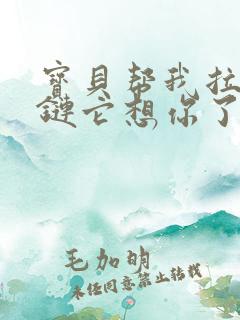 寶貝幫我拉
鏈它想你了
毛加明
未任同意禁止转载